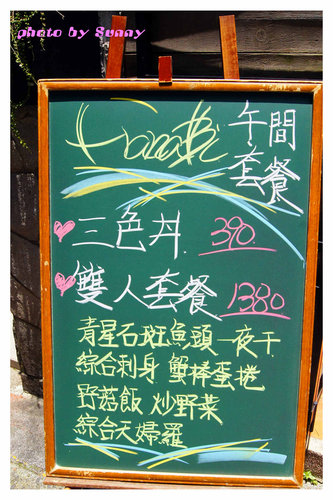 photo by Sunny
Hanabi
午間
套餐
三色丼 390.
雙人套餐 1380
青星石斑魚頭一夜干
綜合刺身 蟹棒蛋捲
野菇飯 炒野菜
綜合天婦羅